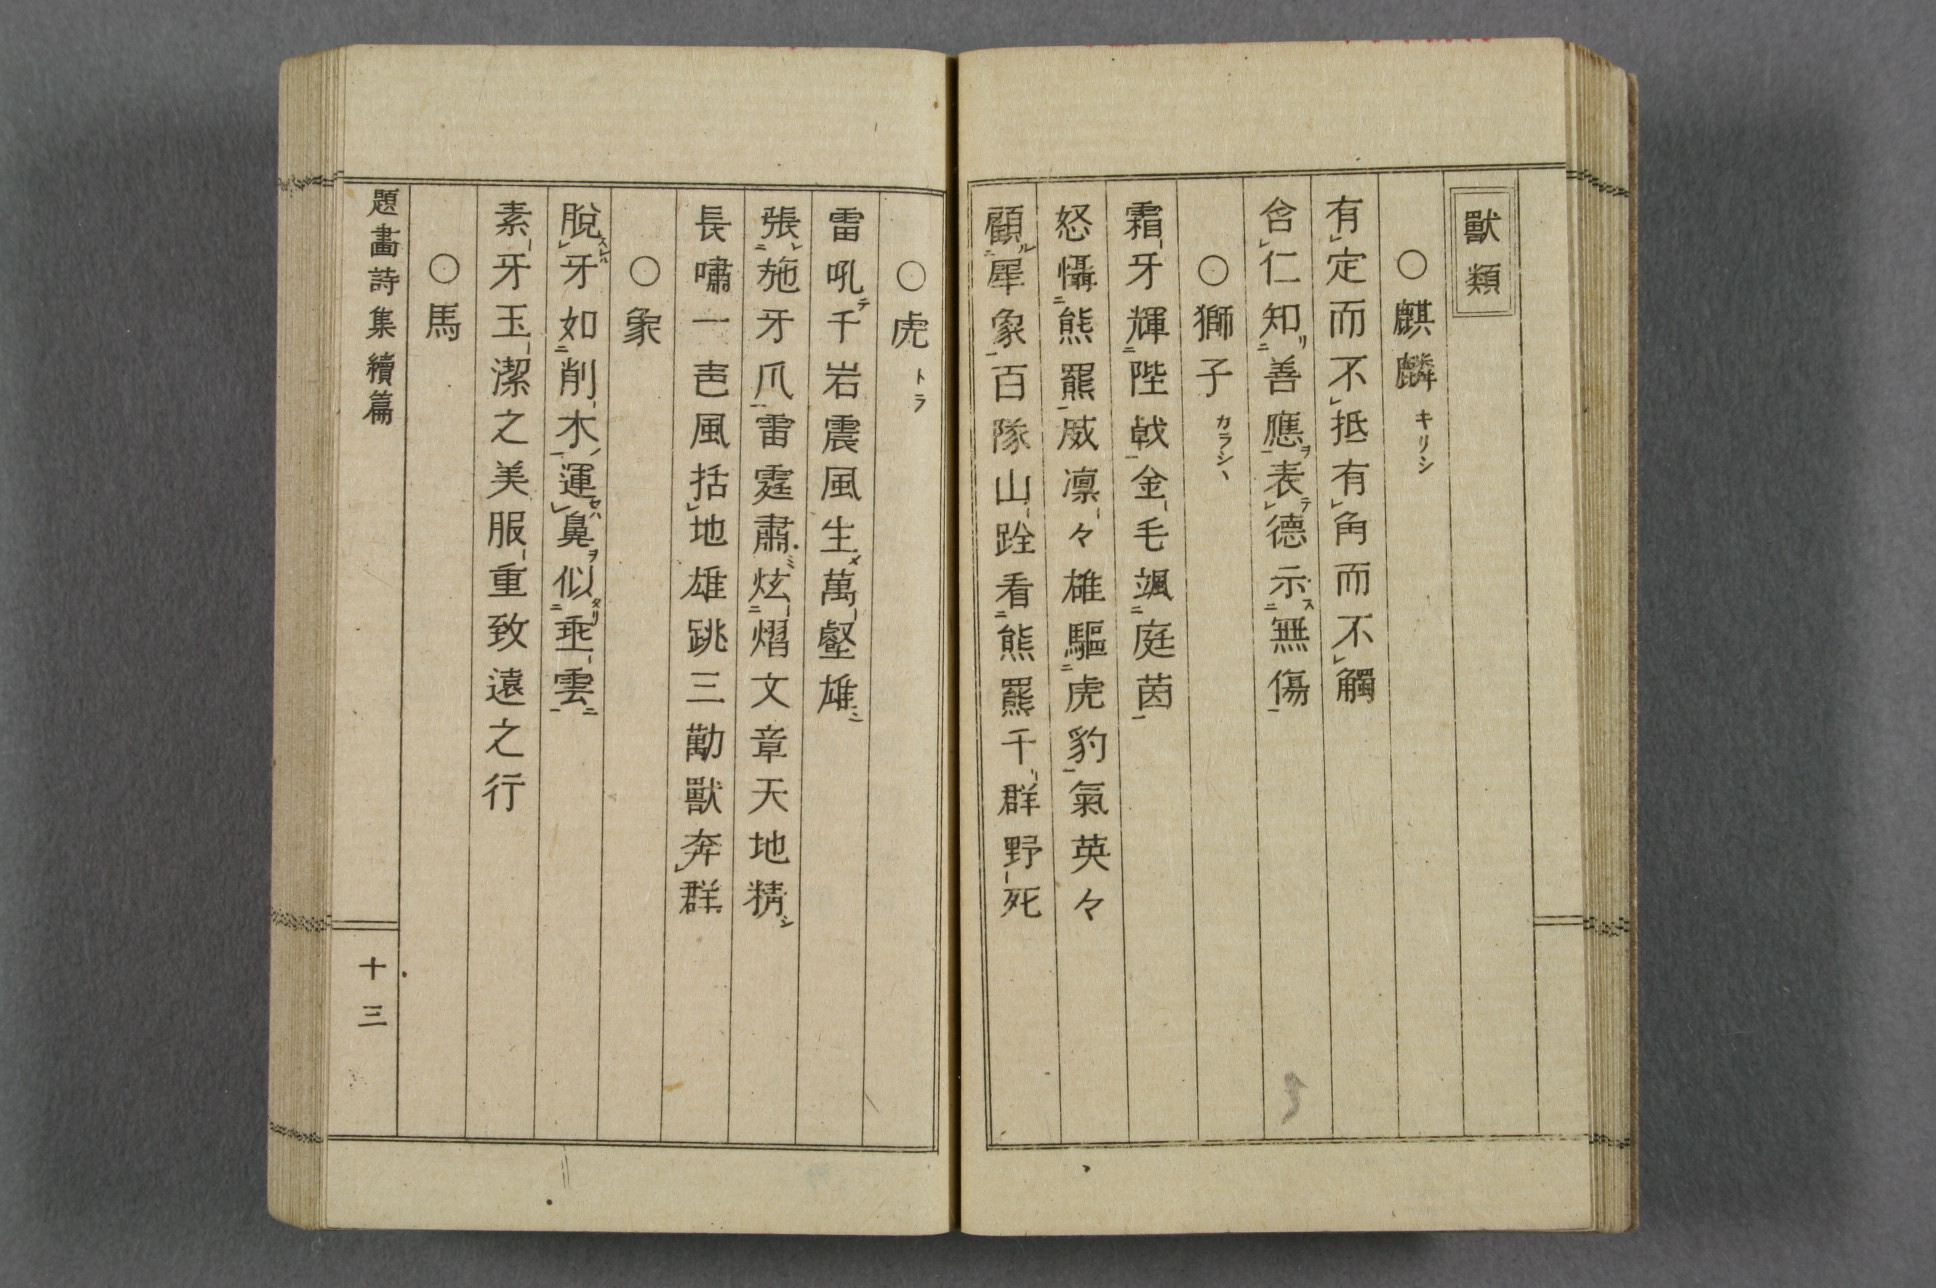 獸類
○麒麟 キリシ
有定而不抵有角而不觸
含仁知善應表德示無傷
○獅子 カラシヽ
霜牙輝陛戟金毛颯庭茵
怒懾熊羆威凛々雄驅虎豹氣英々
顧犀象百隊山跧看熊羆千群野死
○虎 トラ
雷吼千岩震風生萬壑雄
張施牙爪雷霆肅炫熠文章天地精
長嘯一声風括地雄跳三勵獸奔群
○象
脫牙如削木運鼻似乖雲
素牙玉潔之美服重致遠之行
○馬
題畵詩集續篇
十三